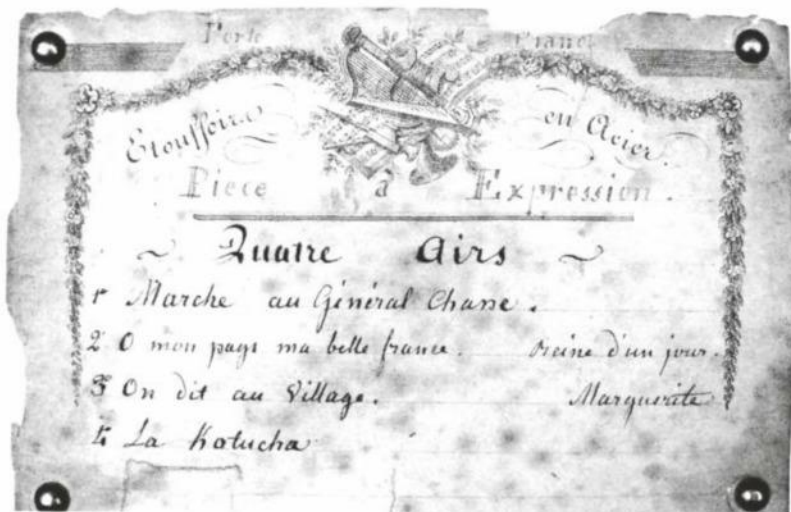 Forte Piano
Etouffoirs en Acier.
Piece à Expression.
~ Quatre Airs ~
1 Marche au Général Chasse.
2 O mon pays ma belle france. reine d'un jour.
3 On dit au Village. Marguerite
4 La Katucha